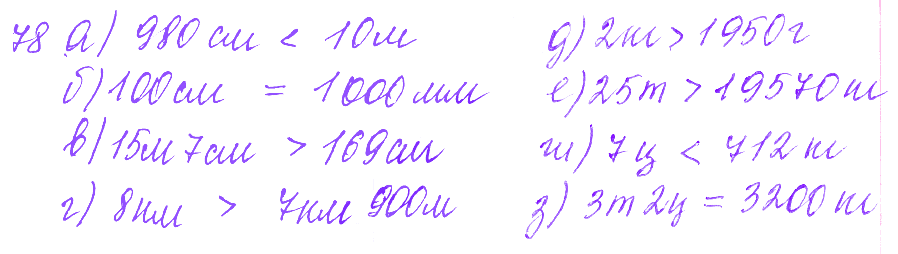 78 а) 980 см < 10 м
б) 100 см = 1000 мм
в) 15 м 7 см > 169 см
г) 8 км > 7 км 900 м
д) 2 кг > 1950 г
е) 25 т > 19570 кг
ж) 7 ц < 712 кг
з) 3 т 2 ц = 3200 кг